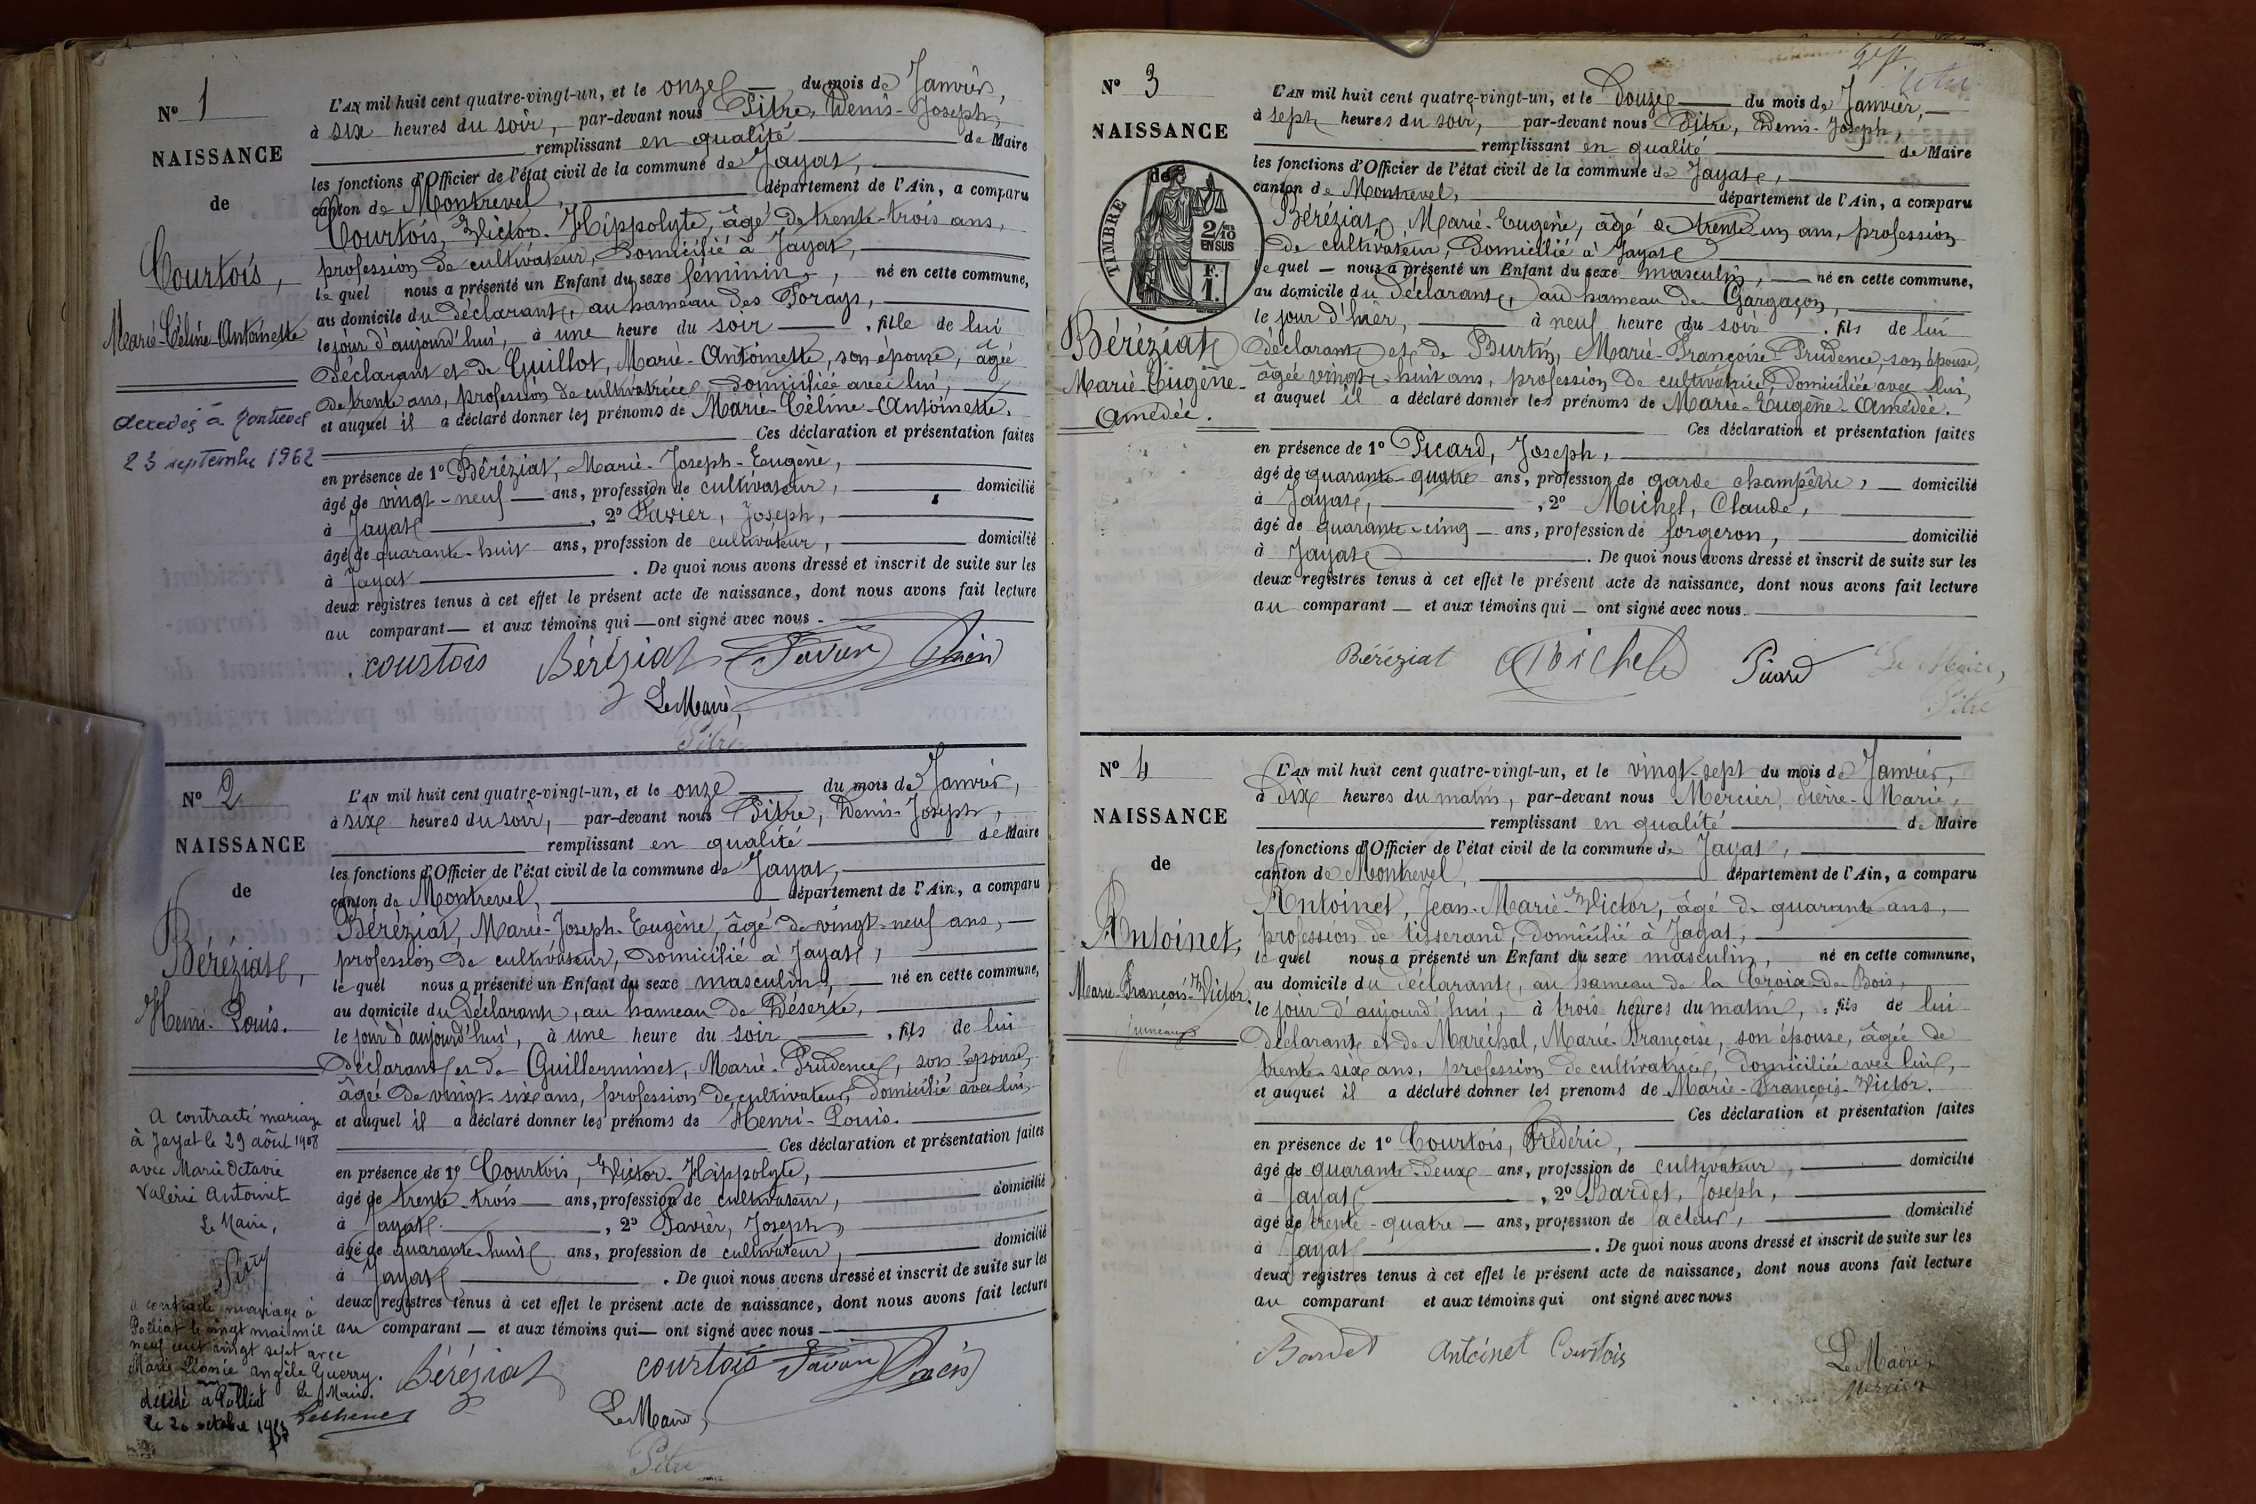 N° 1
NAISSANCE
de
Courtois,
Marie-Céline-Antoinette
décédée à Montrevel
23 septembre 1962
L'AN mil huit cent quatre-vingt-un, et le onze du mois de Janvier,
à six heures du soir, par-devant nous Pitre, Denis-Joseph,
remplissant en qualité de Maire
les fonctions d'Officier de l'état civil de la commune de Jayat,
canton de Montrevel, département de l'Ain, a comparu
Courtois, Victor-Hippolyte, âgé de trente-trois ans,
profession de cultivateur, domicilié à Jayat,
lequel nous a présenté un Enfant du sexe féminin, né en cette commune,
au domicile du déclarant, au hameau des Forays,
le jour d'aujourd'hui, à une heure du soir, fille de lui
déclarant et de Guillot, Marie-Antoinette, son épouse, âgée
de trente ans, profession de cultivatrice domiciliée avec lui,
et auquel il a déclaré donner les prénoms de Marie-Céline-Antoinette.
Ces déclaration et présentation faites
en présence de 1° Béréziat, Marie-Joseph-Eugène,
âgé de vingt-neuf ans, profession de cultivateur, domicilié
à Jayat, 2° Pavier, Joseph,
âgé de quarante-huit ans, profession de cultivateur, domicilié
à Jayat. De quoi nous avons dressé et inscrit de suite sur les
deux registres tenus à cet effet le présent acte de naissance, dont nous avons fait lecture
au comparant et aux témoins qui ont signé avec nous.
courtois Béréziat Pavier
Le Maire,
Pitre
N° 2
NAISSANCE
de
Béréziat,
Henri-Louis.
A contracté mariage
à Jayat le 29 août 1908
avec Marie Octavie
Valérie Antoinet
Le Maire,
a contracté mariage à
Polliat le vingt mai mil
neuf cent vingt sept avec
Marie Léonie Angèle Guerry.
Le Maire.
décédé à Polliat
le 20 octobre
L'AN mil huit cent quatre-vingt-un, et le onze du mois de Janvier,
à six heures du soir, par-devant nous Pitre, Denis-Joseph,
remplissant en qualité de Maire
les fonctions d'Officier de l'état civil de la commune de Jayat,
canton de Montrevel, département de l'Ain, a comparu
Béréziat, Marie-Joseph-Eugène, âgé de vingt-neuf ans,
profession de cultivateur, domicilié à Jayat,
lequel nous a présenté un Enfant du sexe masculin, né en cette commune,
au domicile du déclarant, au hameau de Déserte,
le jour d'aujourd'hui, à une heure du soir, fils de lui
déclarant et de Guillerminet, Marie-Prudence, son épouse,
âgée de vingt-six ans, profession de cultivateur, domicilié avec lui,
et auquel il a déclaré donner les prénoms de Henri-Louis.
Ces déclaration et présentation faites
en présence de 1° Courtois, Victor-Hippolyte,
âgé de trente-trois ans, profession de cultivateur, domicilié
à Jayat, 2° Pavier, Joseph,
âgé de quarante-huit ans, profession de cultivateur, domicilié
à Jayat. De quoi nous avons dressé et inscrit de suite sur les
deux registres tenus à cet effet le présent acte de naissance, dont nous avons fait lecture
au comparant et aux témoins qui ont signé avec nous
Béréziat courtois Pavier
Le Maire,
Pitre
N° 3
NAISSANCE
de
TIMBRE
2/10
EN SUS
F.
1.
Béréziat
Marie-Eugène-
Amédée.
L'AN mil huit cent quatre-vingt-un, et le douze du mois de Janvier,
à sept heures du soir, par-devant nous Pitre, Denis-Joseph,
remplissant en qualité de Maire
les fonctions d'Officier de l'état civil de la commune de Jayat,
canton de Montrevel, département de l'Ain, a comparu
Béréziat, Marie-Eugène, âgé de trente-un ans, profession
de cultivateur, domicilié à Jayat
lequel nous a présenté un Enfant du sexe masculin, né en cette commune,
au domicile du déclarant, au hameau de Gargaçon,
le jour d'hier, à neuf heure du soir. fils de lui
déclarant et de Burtin, Marie-Françoise-Prudence, son épouse,
âgée vingt-huit ans, profession de cultivatrice, domiciliée avec lui,
et auquel il a déclaré donner les prénoms de Marie-Eugène-Amédée.
Ces déclaration et présentation faites
en présence de 1° Picard, Joseph,
âgé de quarante-quatre ans, profession de garde champêtre, domicilié
à Jayat, 2° Michel, Claude,
âgé de quarante-cinq ans, profession de forgeron, domicilié
à Jayat. De quoi nous avons dressé et inscrit de suite sur les
deux registres tenus à cet effet le présent acte de naissance, dont nous avons fait lecture
au comparant et aux témoins qui ont signé avec nous.
Béréziat Michel Picard Le Maire,
Pitre
N° 4
NAISSANCE
de
Antoinet,
Marie-François-Victor.
jumeaux
L'AN mil huit cent quatre-vingt-un, et le vingt-sept du mois de Janvier,
à dix heures du matin, par-devant nous Mercier, Pierre-Marie,
remplissant en qualité de Maire
les fonctions d'Officier de l'état civil de la commune de Jayat,
canton de Montrevel, département de l'Ain, a comparu
Antoinet, Jean-Marie-Victor, âgé de quarante ans,
profession de tisserand, domicilié à Jayat,
lequel nous a présenté un Enfant du sexe masculin, né en cette commune,
au domicile du déclarant, au hameau de la Croix-de-Bois,
le jour d'aujourd'hui, à trois heures du matin, fils de lui
déclarant et de Maréchal, Marie-Françoise, son épouse, âgée de
trente-six ans, profession de cultivatrice, domiciliée avec lui,
et auquel il a déclaré donner les prénoms de Marie-François-Victor.
Ces déclaration et présentation faites
en présence de 1° Courtois, Frédéric,
âgé de quarante-deux ans, profession de cultivateur, domicilié
à Jayat, 2° Bardet, Joseph,
âgé de trente-quatre ans, profession de facteur, domicilié
à Jayat. De quoi nous avons dressé et inscrit de suite sur les
deux registres tenus à cet effet le présent acte de naissance, dont nous avons fait lecture
au comparant et aux témoins qui ont signé avec nous
Bardet Antoinet Courtois
Le Maire,
Mercier